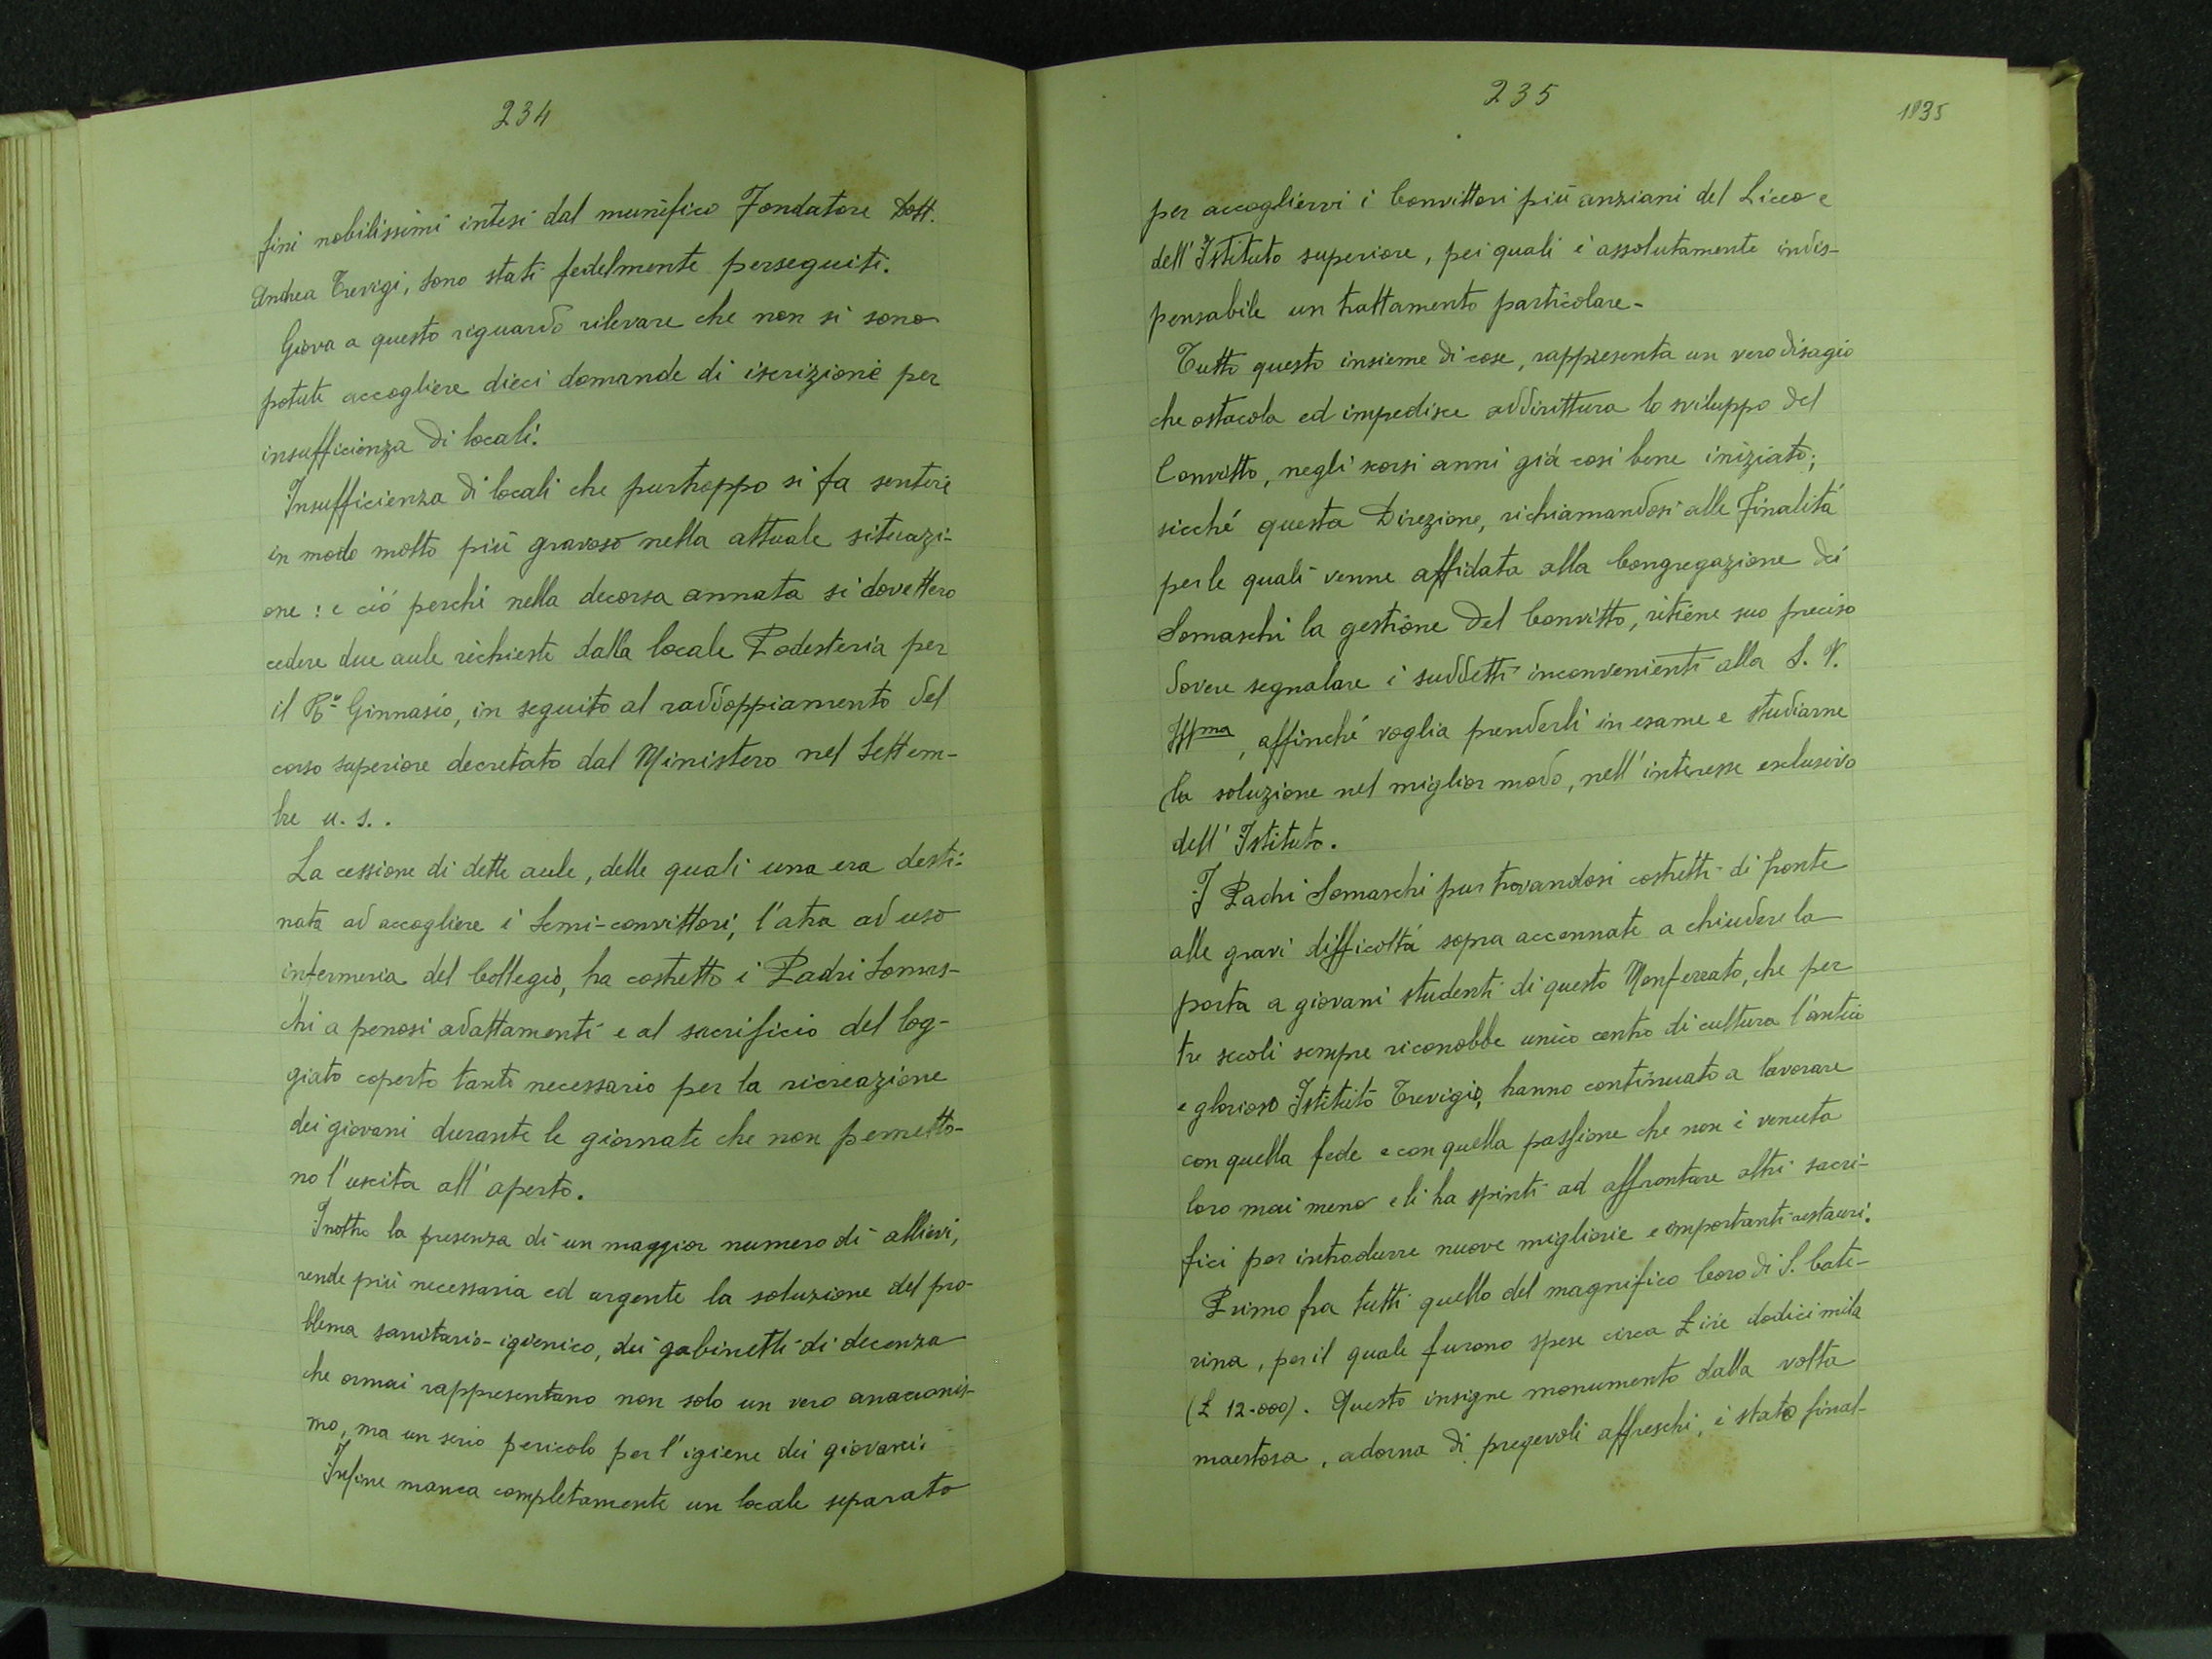 234
fini nobilissimi intesi dal munifico Fondatore Dott.
Andrea Trevigi, sono stati fedelmente perseguiti.
Giova a questo riguardo rilevare che non si sono
potute accogliere dieci domande di iscrizione per
insufficienza di locali.
Insufficienza di locali che purtroppo si fa sentire
in modo molto più gravoso nella attuale situazi-
one: e ciò perché nella decorsa annata si dovettero
cedere due aule richieste dalla locale Podesteria per
il Rº Ginnasio, in seguito al raddoppiamento del
corso superiore decretato dal Ministero nel Settem-
bre u. s..
La cessione di dette aule, delle quali una era desti-
nata ad accogliere i Semi-convittori, l'atra ad uso
infermeria del Collegio, ha costretto i Padri Somas-
chi a penosi adattamenti e al sacrificio del log-
giato coperto tanto necessario per la ricreazione
dei giovani durante le giornate che non permetto-
no l'uscita all'aperto.
Inoltre la presenza di un maggior numero di allievi,
rende più necessaria ed urgente la soluzione del pro-
blema sanitario-igienico, dei gabinetti di decenza
che ormai rappresentano non solo un vero anacronis-
mo, ma un serio pericolo per l'igiene dei giovani.
Infine manca completamente un locale separato
235
1935
per accogliervi i Convittori più anziani del Liceo e
dell'Istituto superiore, pei quali è assolutamente indis-
pensabile un trattamento particolare.
Tutto questo insieme di cose, rappresenta un vero disagio
che ostacola ed impedisce addirittura lo sviluppo del
Convitto, negli scorsi anni già così bene iniziato;
sicché questa Direzione, richiamandosi alle Finalità
per le quali venne affidata alla Congregazione dei
Somaschi la gestione del Convitto, ritiene suo preciso
dovere segnalare i suddetti inconvenienti alla S. V.
Illma, affinché voglia prenderli in esame e studiarne
la soluzione nel miglior modo, nell'interesse esclusivo
dell'Istituto.
I Padri Somaschi pur trovandosi costretti di fronte
alle gravi difficoltà sopra accennate a chiudere la
porta a giovani studenti di questo Monferrato, che per
tre secoli sempre riconobbe unico centro di cultura l'antico
e glorioso Istituto Trevigio, hanno continuato a lavorare
con quella fede e con quella passione che non è venuta
loro mai meno e li ha spinti ad affrontare altri sacri-
fici per introdurre nuove migliorie e importanti restauri.
Primo fra tutti quello del magnifico Coro di S. Cate-
rina, per il quale furono spese circa Lire dodicimila
(£ 12.000). Questo insigne monumento dalla volta
maestosa, adorna di pregevoli affreschi, è stato final-